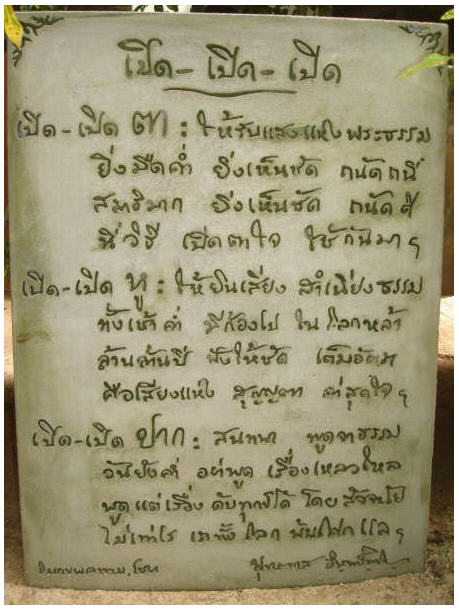 เปิด-เปิด-เปิด
เปิด-เปิด ตา : ให้รับแสงแห่งพระธรรม
ยิ่งมืดค่ำ ยิ่งเห็นชัด ถนัดถนี่
สมาธิมาก ยิ่งเห็นชัด ถนัดดี
นี่วิธี เปิดตาใจ ใช้กันมา ฯ
เปิด-เปิด หู : ให้ยินเสียง สำเนียงธรรม
ทั้งเช้าค่ำ มีก้องไป ในโลกหล้า
ล้านล้านปี ฟังให้ชัด เต็มอัตรา
คือเสียงแห่ง สุญญตา ค่าสุดใจ ฯ
เปิด-เปิด ปาก : สนทนา พูดจาธรรม
วันยังค่ำ อย่าพูด เรื่องเหลวไหล
พูดแต่เรื่อง ดับทุกข์ได้ โดยสัจจนัย
ไม่เท่าไร เราทั้งโลก พ้นโศกแล ฯ
โมกขพลาราม, ไชยา พุทธทาส อินทปัญโญ